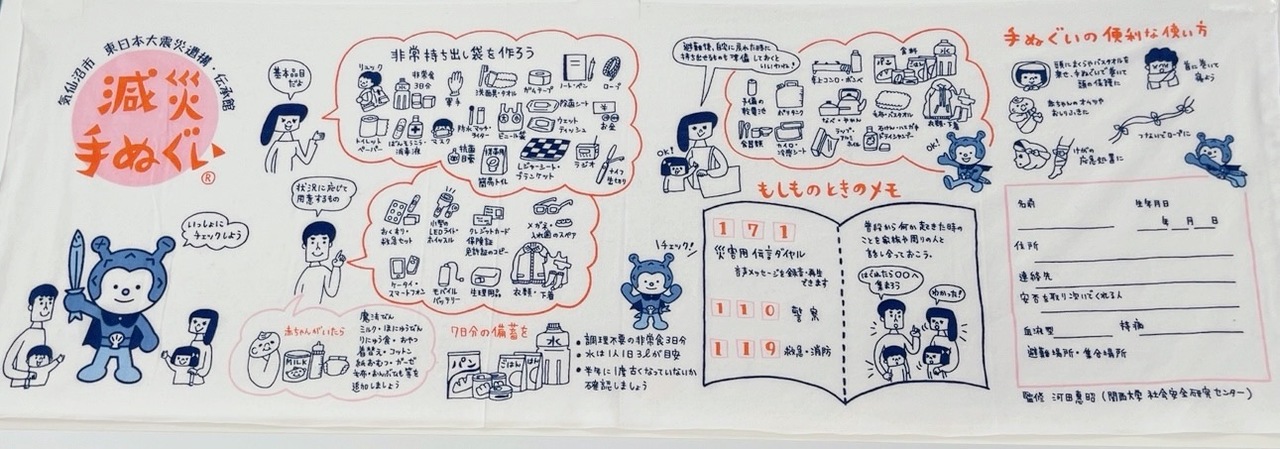 気仙沼市 東日本大震災遺構・伝承館
減災
手ぬぐい®
いっしょに
チェックしよう
基本品目
だよ
非常持ち出し袋を作ろう
リュック
非常食
3日分
軍手
洗面具・タオル
ガムテープ
ノート・ペン
ロープ
トイレット
ペーパー
ばんそうこう・
消毒液
マスク
防水マッチ・
ライター
ビニール袋
除菌シート
ウェット
ティッシュ
お金
抗菌
目薬
簡易トイレ
レジャーシート・
ブランケット
ラジオ
ナイフ
缶切り
状況に応じて
用意するもの
おくすり・
救急セット
小型の
LEDライト・
ホイッスル
クレジットカード
保険証
免許証のコピー
メガネ・
入れ歯のスペア
ケータイ・
スマートフォン
モバイル
バッテリー
生理用品
衣類・下着
赤ちゃんがいたら
MILK
魔法びん
ミルク・ほにゅうびん
りにゅう食・おやつ
着替え・コットン
紙おむつ・ガーゼ
毛布・おんぶひも等を
追加しましょう
7日分の備蓄を
パン
ごはん
水
チェック!
• 調理不要の非常食3日分
• 水は1人1日3ℓが目安
• 半年に1度古くなっていないか
確認しましょう
避難後、自宅に戻れた時に
持ち出せるものも準備しておくと
いいわね!
OK!
予備の
乾電池
卓上コンロ・ボンベ
ポリタンク
なべ・やかん
食料
パン
水
毛布・バスタオル
衣類・下着
食器類
カイロ・
冷却シート
ラップ・
アルミ
ホイル
石けん・ハミガキ
ドライシャンプー
OK!
もしものときのメモ
171
災害用伝言ダイヤル
音声メッセージを録音・再生
できます
110 警察
119 救急・消防
普段から何か起きた時の
ことを家族や周りの人と
話し合っておこう。
はぐれたら○○へ
集まろう
わかった!
手ぬぐいの便利な使い方
頭にまくらやバスタオルを
乗せ、手ぬぐいで巻いて
頭の保護に
首に巻いて
寝よう
赤ちゃんのオムツや
おしりふきに
つないでロープに
けがの
応急処置に
名前
生年月日
年 月 日
住所
連絡先
安否を取り次いでくれる人
血液型
持病
避難場所・集合場所
監修 河田惠昭(関西大学 社会安全研究センター)